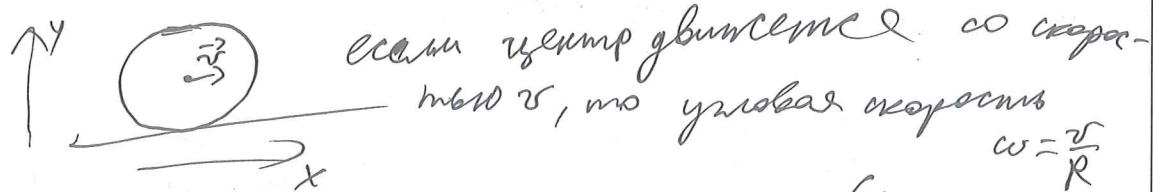 y
v⃗
если центр движется со скорос-
тью v, то угловая скорость
ω = v/R
x